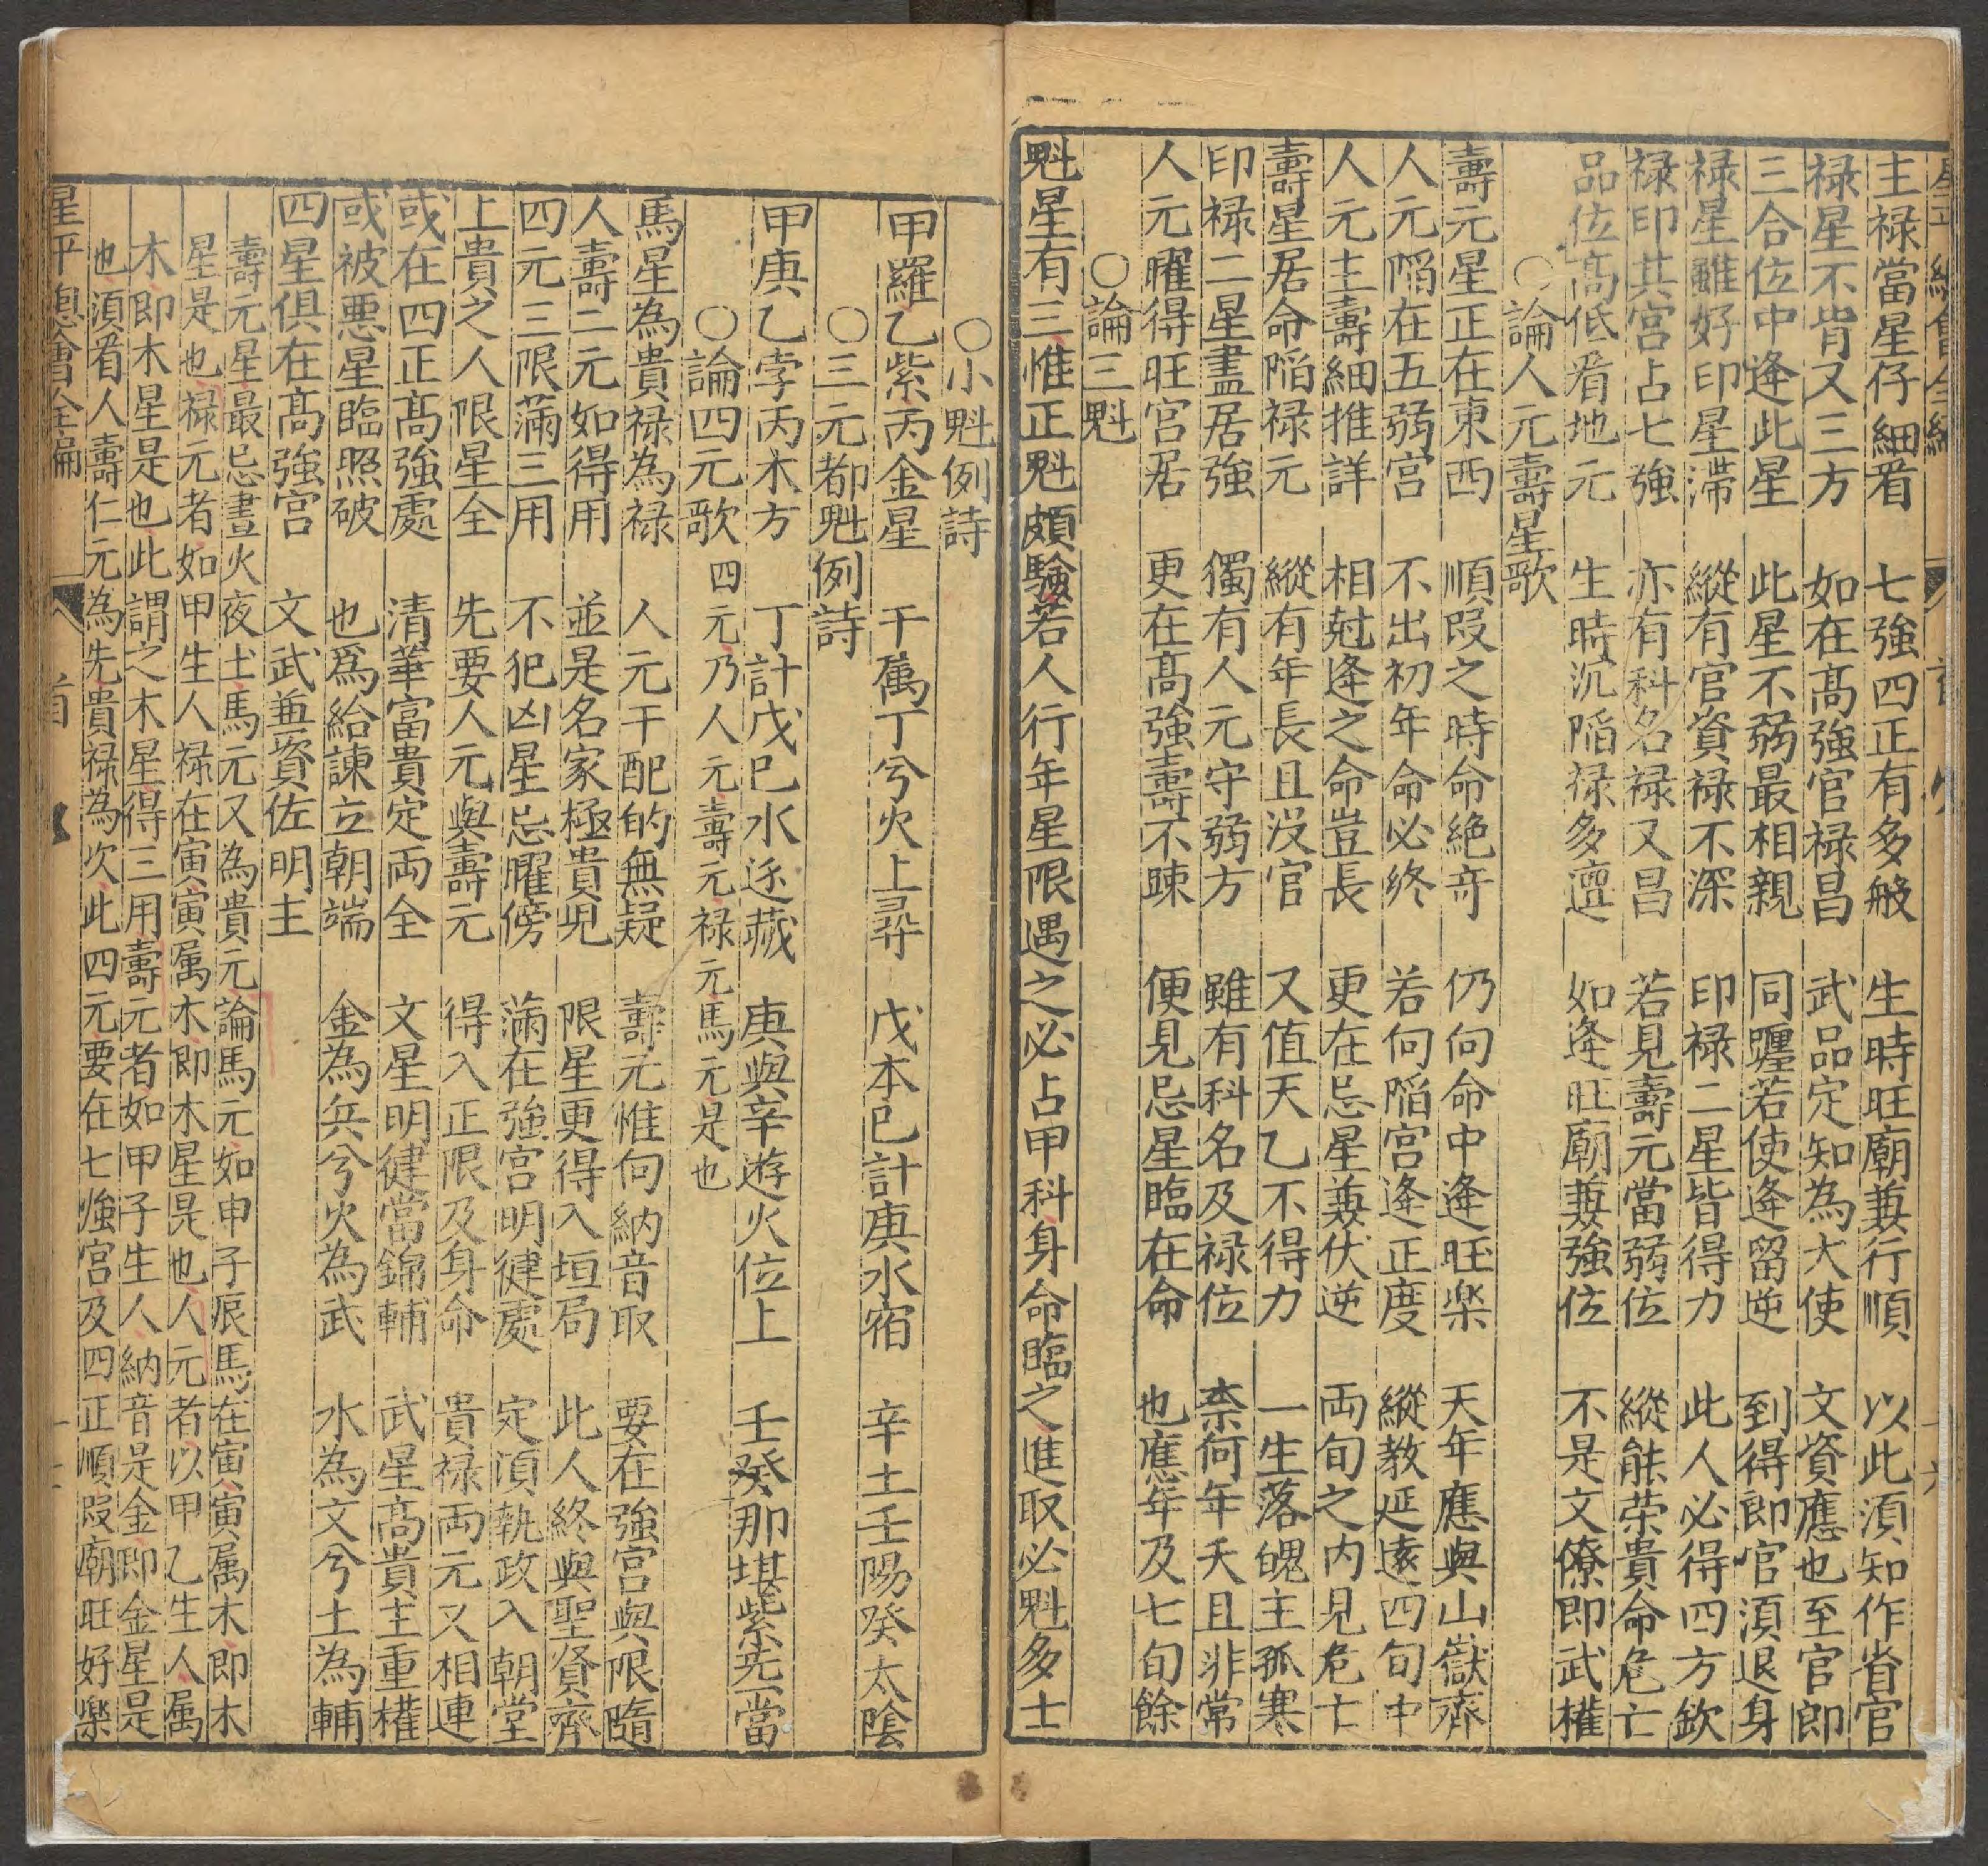 主禄當星仔細看　七強四正有多般　生時旺廟兼行順　以此須知作省官
禄星不肯又三方　如在高強官禄昌　武品定知為大使　文資應也至官郎
三合位中逢此星　此星不弱最相親　同躔若使逢留逆　到得即官須退身
禄星雖好印星滯　縱有官資禄不深　印禄二星皆得力　此人必得四方欽
禄印其宮占七強　亦有科名禄又昌　若見壽元當弱位　縱能荣貴命危亡
品位高低看地元　生時沉陷禄多邅　如逢旺廟兼強位　不是文僚即武權
○論人元壽星歌
壽元星正在東西　順段之時命絕奇　仍向命中逢旺楽　天年應與山嶽齊
人元陷在五弱宮　不出初年命必終　若向陷宮逢正度　縱教延遠四旬中
人元主壽細推詳　相尅逢之命豈長　更在忌星兼伏逆　両旬之內見危亡
壽星居命陷禄元　縱有年長且沒官　又值天乙不得力　一生落魄主孤寒
印禄二星盡居強　獨有人元守弱方　雖有科名及禄位　柰何年夭且非常
人元曜得旺宮居　更在高強壽不踈　便見忌星臨在命　也應年及七旬餘
○論三魁
魁星有三惟正魁頗驗若人行年星限遇之必占甲科身命臨之進取必魁多士
○小魁例詩
甲羅乙紫丙金星　干属丁兮火上尋　戊本巳計庚水宿　辛土壬陽癸太陰
○三元都魁例詩
甲庚乙孛丙木方　丁計戊巳水逐藏　庚與辛遊火位上　壬癸那堪紫炁當
○論四元歌　四元乃人元壽元禄元馬元是也
馬星為貴禄為禄　人元干配的無疑　壽元惟向納音取　要在強宮與限隨
人壽二元如得用　並是名家極貴兒　限星更得入垣局　此人終與聖賢齊
四元三限滿三用　不犯凶星忌曜傍　滿在強宮明健處　定須執政入朝堂
上貴之人限星全　先要人元與壽元　得入正限及身命　貴禄両元又相連
或在四正高強處　清華富貴定両全　文星明健當錦輔　武星高貴主重權
或被悪星臨照破　也爲給諫立朝端　金為兵兮火為武　水為文兮土為輔
四星俱在高強宮　文武兼資佐明主
壽元星最忌晝火夜土馬元又為貴元論馬元如申子辰馬在寅寅属木即木
星是也禄元者如甲生人禄在寅寅属木即木星是也人元者以甲乙生人属
木即木星是也此謂之木星得三用壽元者如甲子生人納音是金即金星是
也須看人壽仁元為先貴禄為次此四元要在七強宮及四正順段廟旺好楽
星平總會全編　首　卷